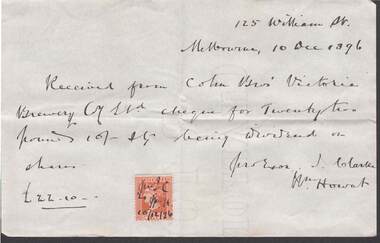 125 William St.
Melbourne, 10 Dec 1896
Received from Cohn Bros' Victoria
Brewery Coy Ltd cheque for Twentytwo
pounds 10/- stg being dividend on
shares
pro Exor J. Clarke
£22-10-
Wm Howat
10/12/96